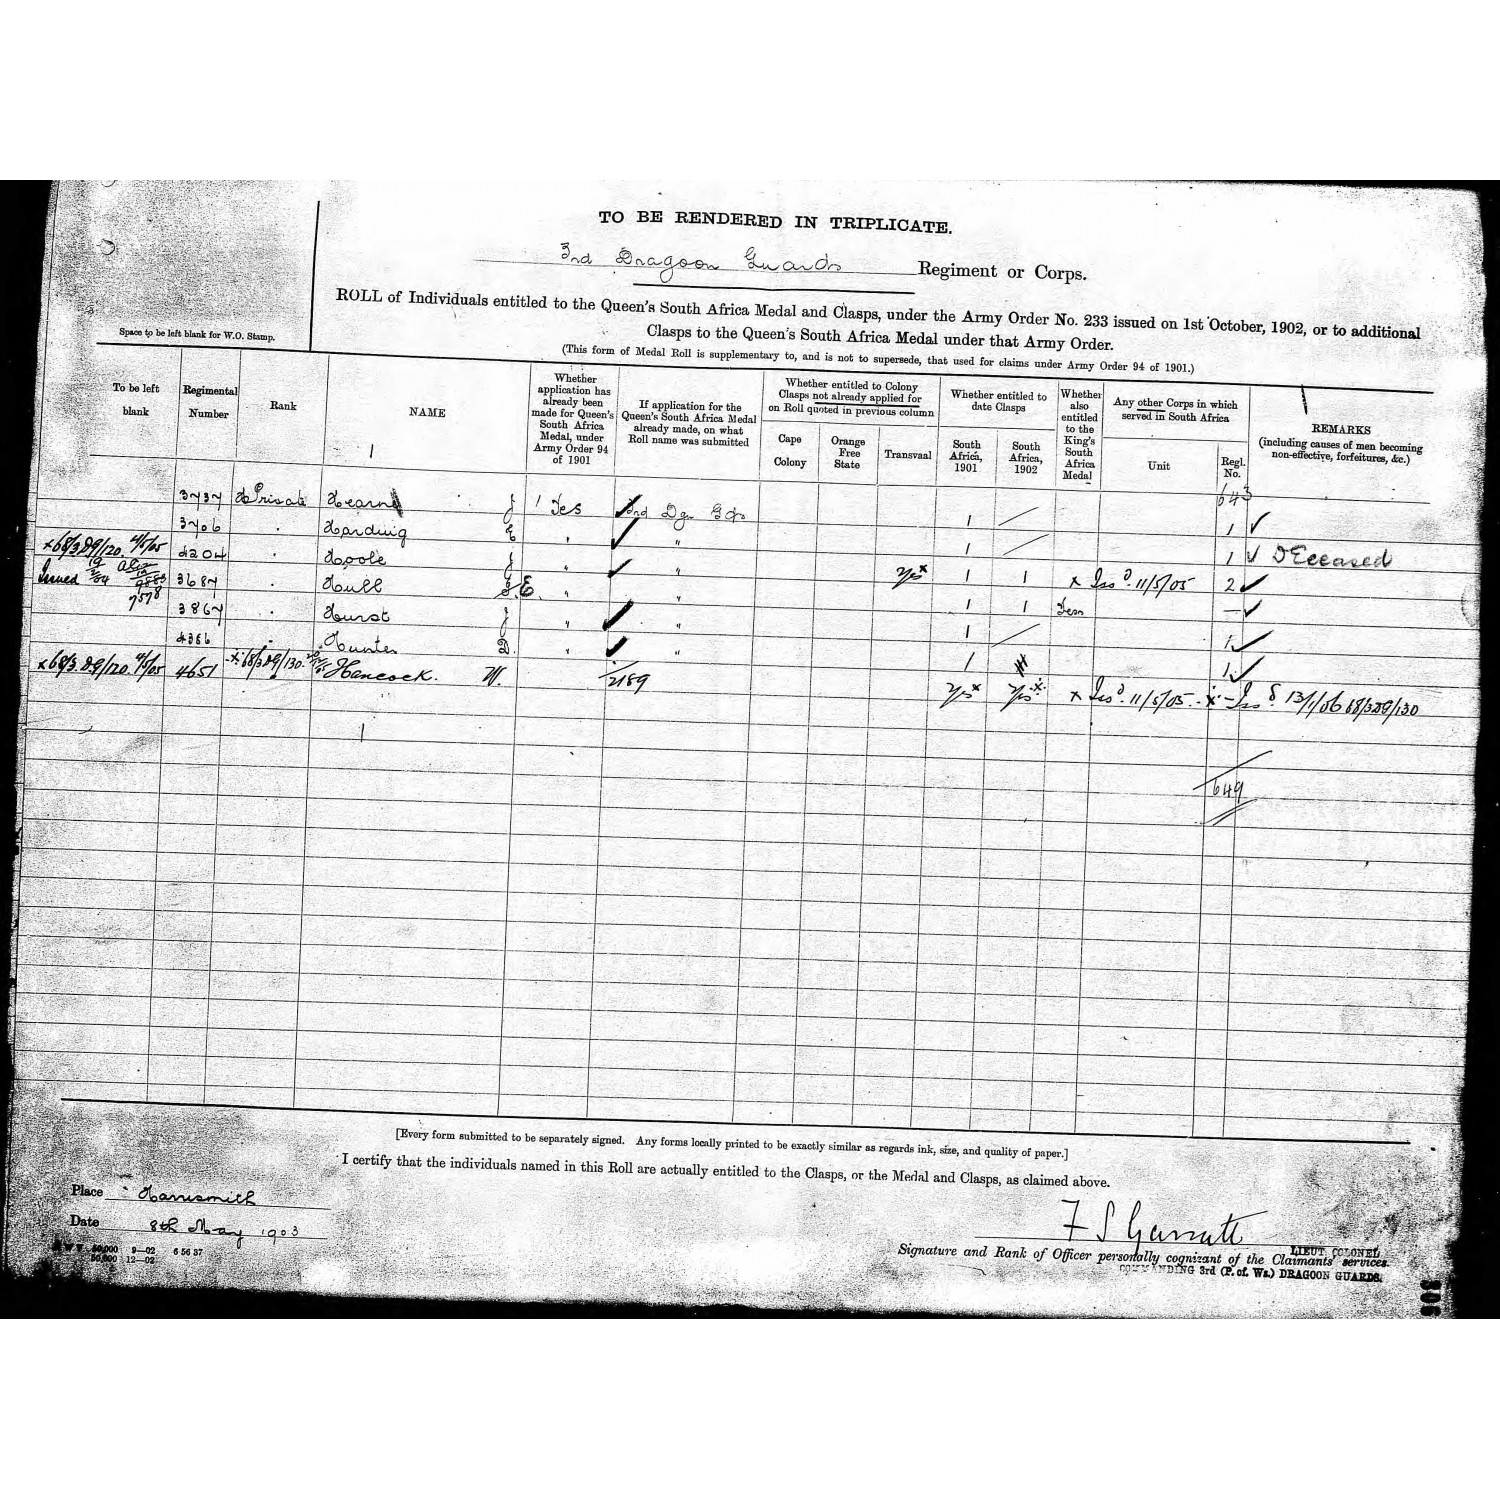 TO BE RENDERED IN TRIPLICATE.
3rd Dragoon Guards Regiment or Corps.
ROLL of Individuals entitled to the Queen's South Africa Medal and Clasps, under the Army Order No. 233 issued on 1st October, 1902, or to additional
Clasps to the Queen's South Africa Medal under that Army Order.
(This form of Medal Roll is supplementary to, and is not to supersede, that used for claims under Army Order 94 of 1901.)
Space to be left blank for W.O. Stamp.
To be left blank
Regimental Number
Rank
NAME
Whether application has already been made for Queen's South Africa Medal, under Army Order 94 of 1901
If application for the Queen's South Africa Medal already made, on what Roll name was submitted
Whether entitled to Colony Clasps not already applied for on Roll quoted in previous column
Cape Colony
Orange Free State
Transvaal
Whether entitled to date Clasps
South Africa, 1901
South Africa, 1902
Whether also entitled to the King's South Africa Medal
Any other Corps in which served in South Africa
Unit
Regl. No.
REMARKS
(including causes of men becoming non-effective, forfeitures, &c.)
643
3737 Private Hearn J Yes 3rd Dgn Gds 1 1 ✓
3706 " Harding E " " 1 1 ✓ Deceased
x68/3.D9/120. 4/5/05 4204 " Hoole J " " Yes x 1 1 x Issd. 11/5/05 2 ✓
Issued 3687 " Hull G.E. " " 1 1 Yes – ✓
7578
3867 " Hurst J " " 1 1 ✓
4386 " Hunter D. " " 1 1 ✓
x68/3.D9/120. 4/5/05 4651 x 68/3D9/130. Hancock. W. 2189 Yes x Yes x x Issd. 11/5/05. x – Issd 13/1/06 68/3D9/130
649
[Every form submitted to be separately signed. Any forms locally printed to be exactly similar as regards ink, size, and quality of paper.]
I certify that the individuals named in this Roll are actually entitled to the Clasps, or the Medal and Clasps, as claimed above.
Place Harrismith
Date 8th May 1903
50,000 9—02 6 56 37
50,000 12—02
F S Garratt
LIEUT. COLONEL
Signature and Rank of Officer personally cognizant of the Claimants' services.
COMMANDING 3rd (P. of. Ws.) DRAGOON GUARDS.